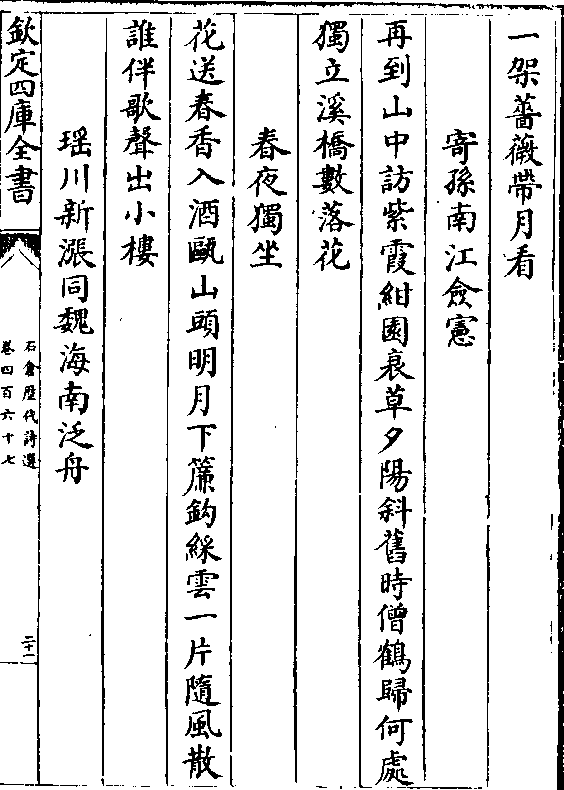 一架薔薇帶月看
寄孫南江僉憲
再到山中訪紫霞紺園衰草夕陽斜舊時僧鶴歸何處
獨立溪橋數落花
春夜獨坐
花送春香入酒甌山頭明月下簾鈎綵雲一片隨風散
誰伴歌聲出小樓
瑶川新漲同魏海南泛舟
欽定四庫全書
石倉歴代詩選
卷四百六十七
二十二